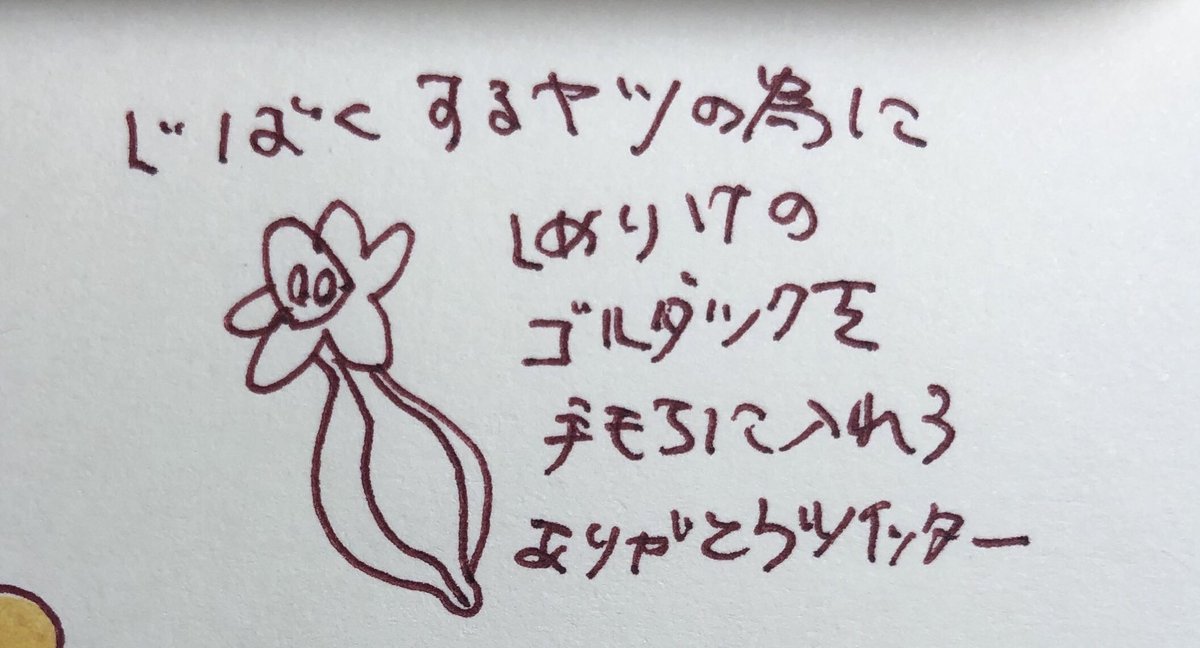 じばくするヤツの為に
しめりけの
ゴルダックを
手モちに入れろ
ありがとうツイッター